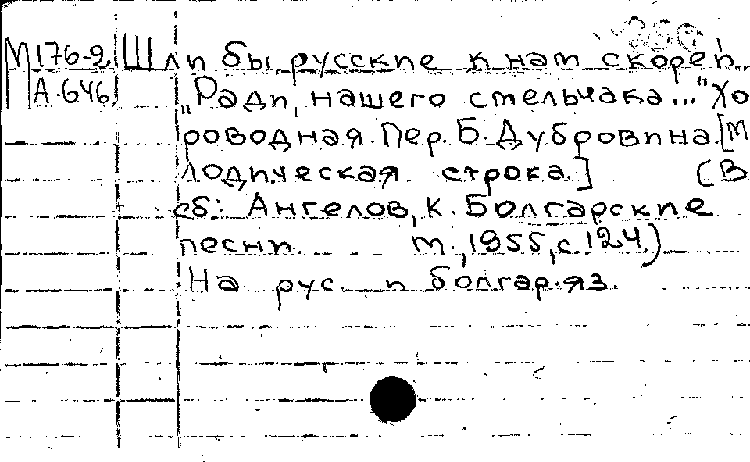 М176-2 Шли бы русские к нам скорей..
МА-646 „Ради, нашего стельчака..." Хо
роводная. Пер. Б. Дубровина. [М
лодическая строка.] (В
сб: Ангелов, К. Болгарские
песни. М., 1955, с. 124.)
На рус. и болгар. яз.